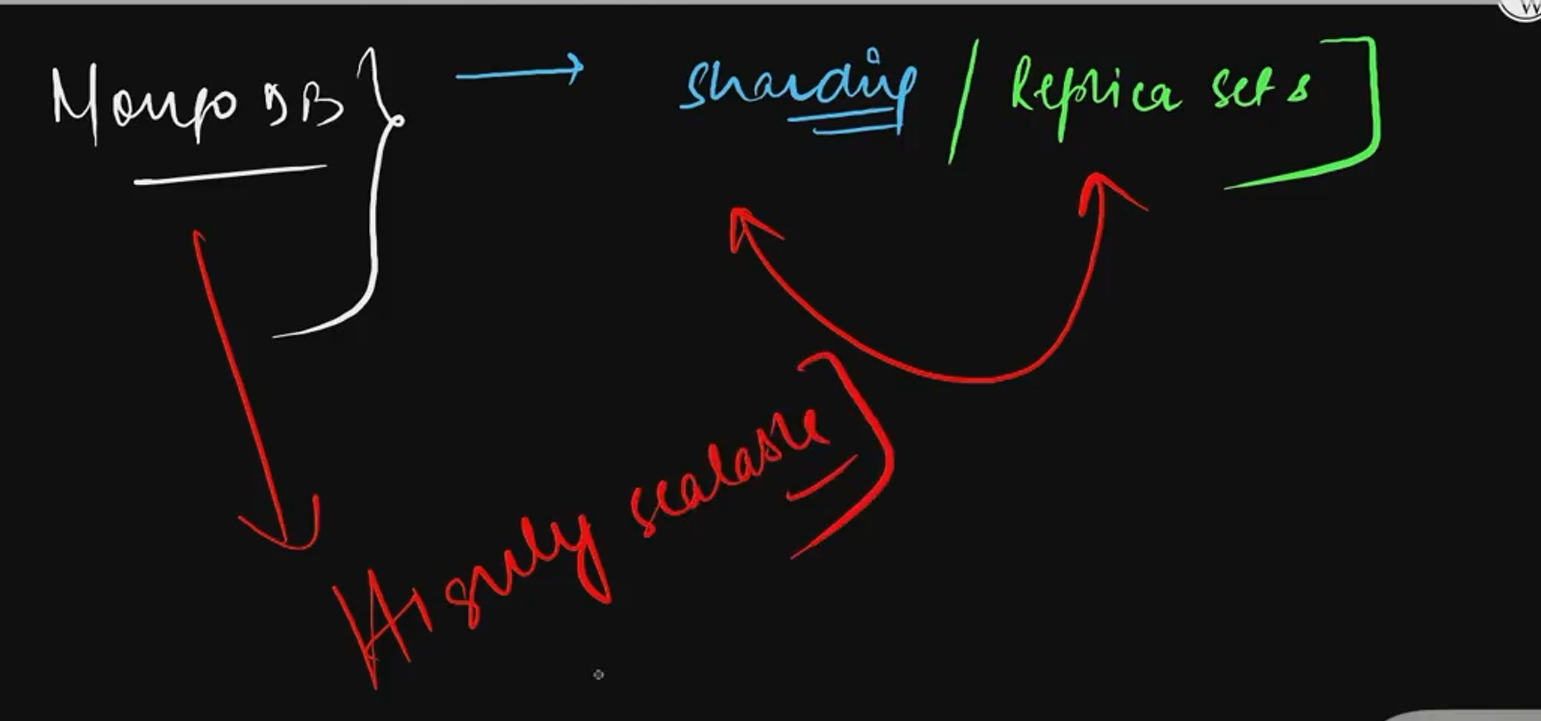 MongoDB → sharding / Replica sets
Highly scalable
W